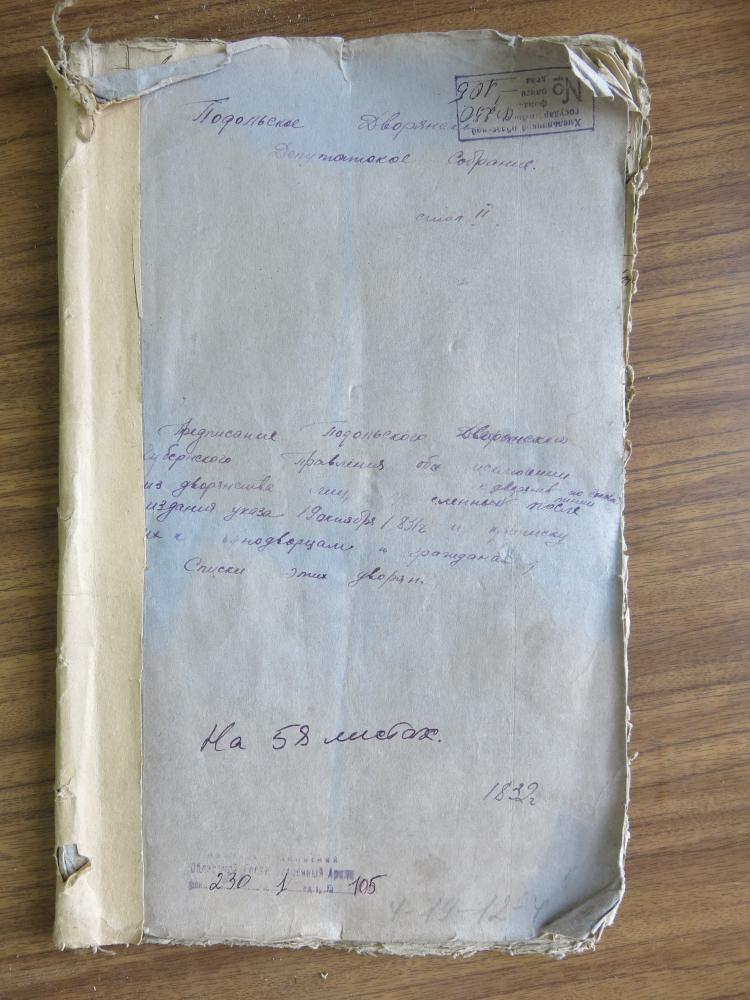 Подольское Дворянск
Депутатское Собрание.
стол II
Хмельницкий областной
государ
фонд Ф230
описи 1
№ дела 106
Предписание Подольского Дворянского
Губернского Правления об исключении
из дворянства лиц, сленных к дворянств по
после
издания указа 19 октября 1831г и приписку
их к однодворцам и гражданам;
Списки этих дворян.
На 58 листах.
1832г
Областной Госуд венный Архив
фон. 230 1 ед. хр. № 105
4-19-12-4